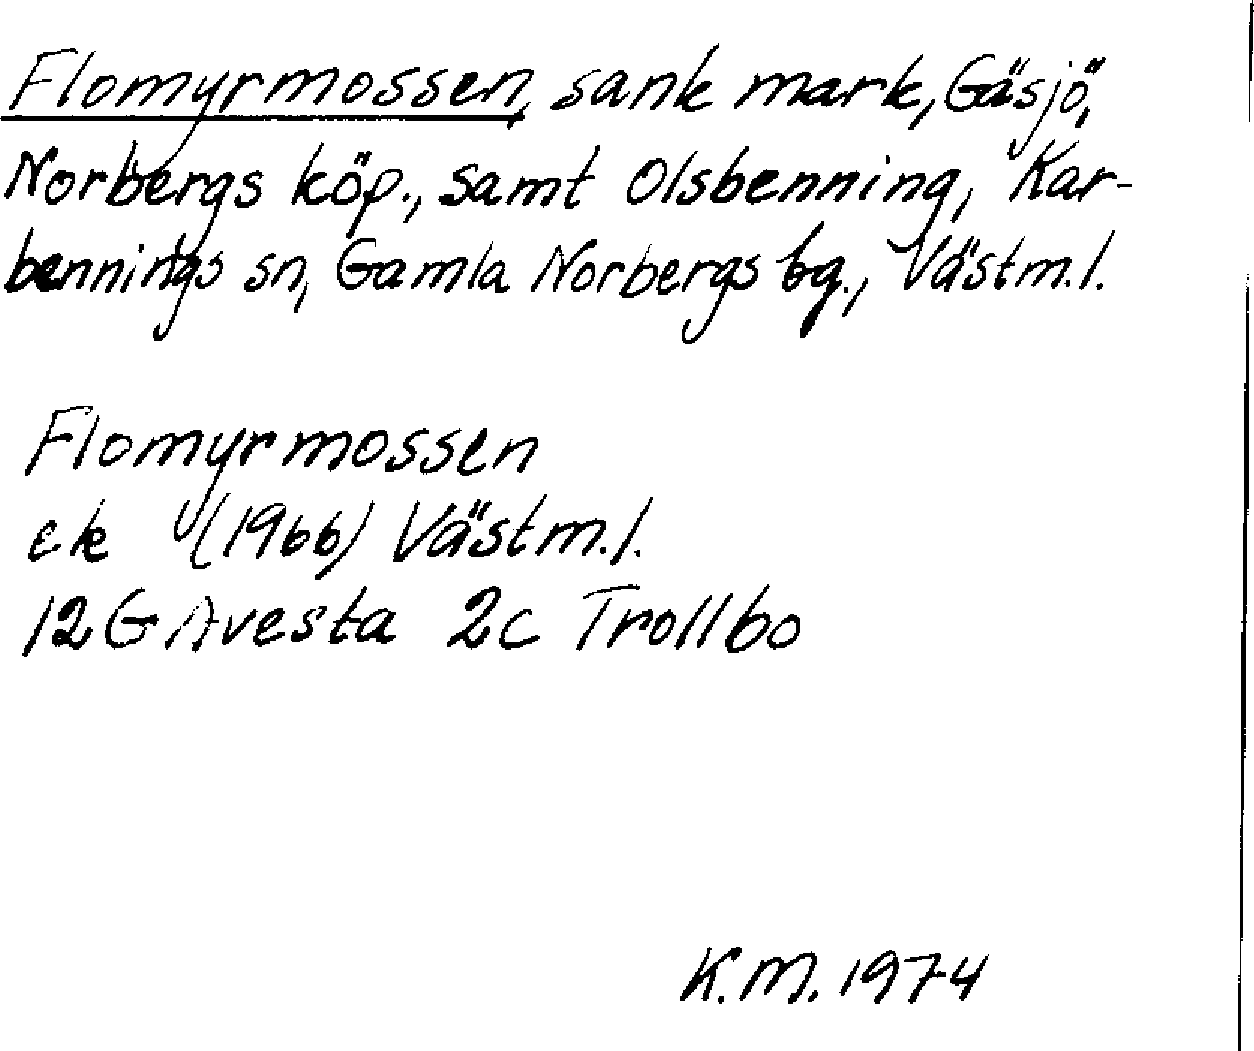 Flomyrmossen, sank mark, Gäsjö,
Norbergs köp., samt Olsbenning, Kar-
bennings sn, Gamla Norbergs bg., Västm.l.
Flomyrmossen
ek (1966) Västm.l.
12G Avesta 2c Trollbo
K.M. 1974